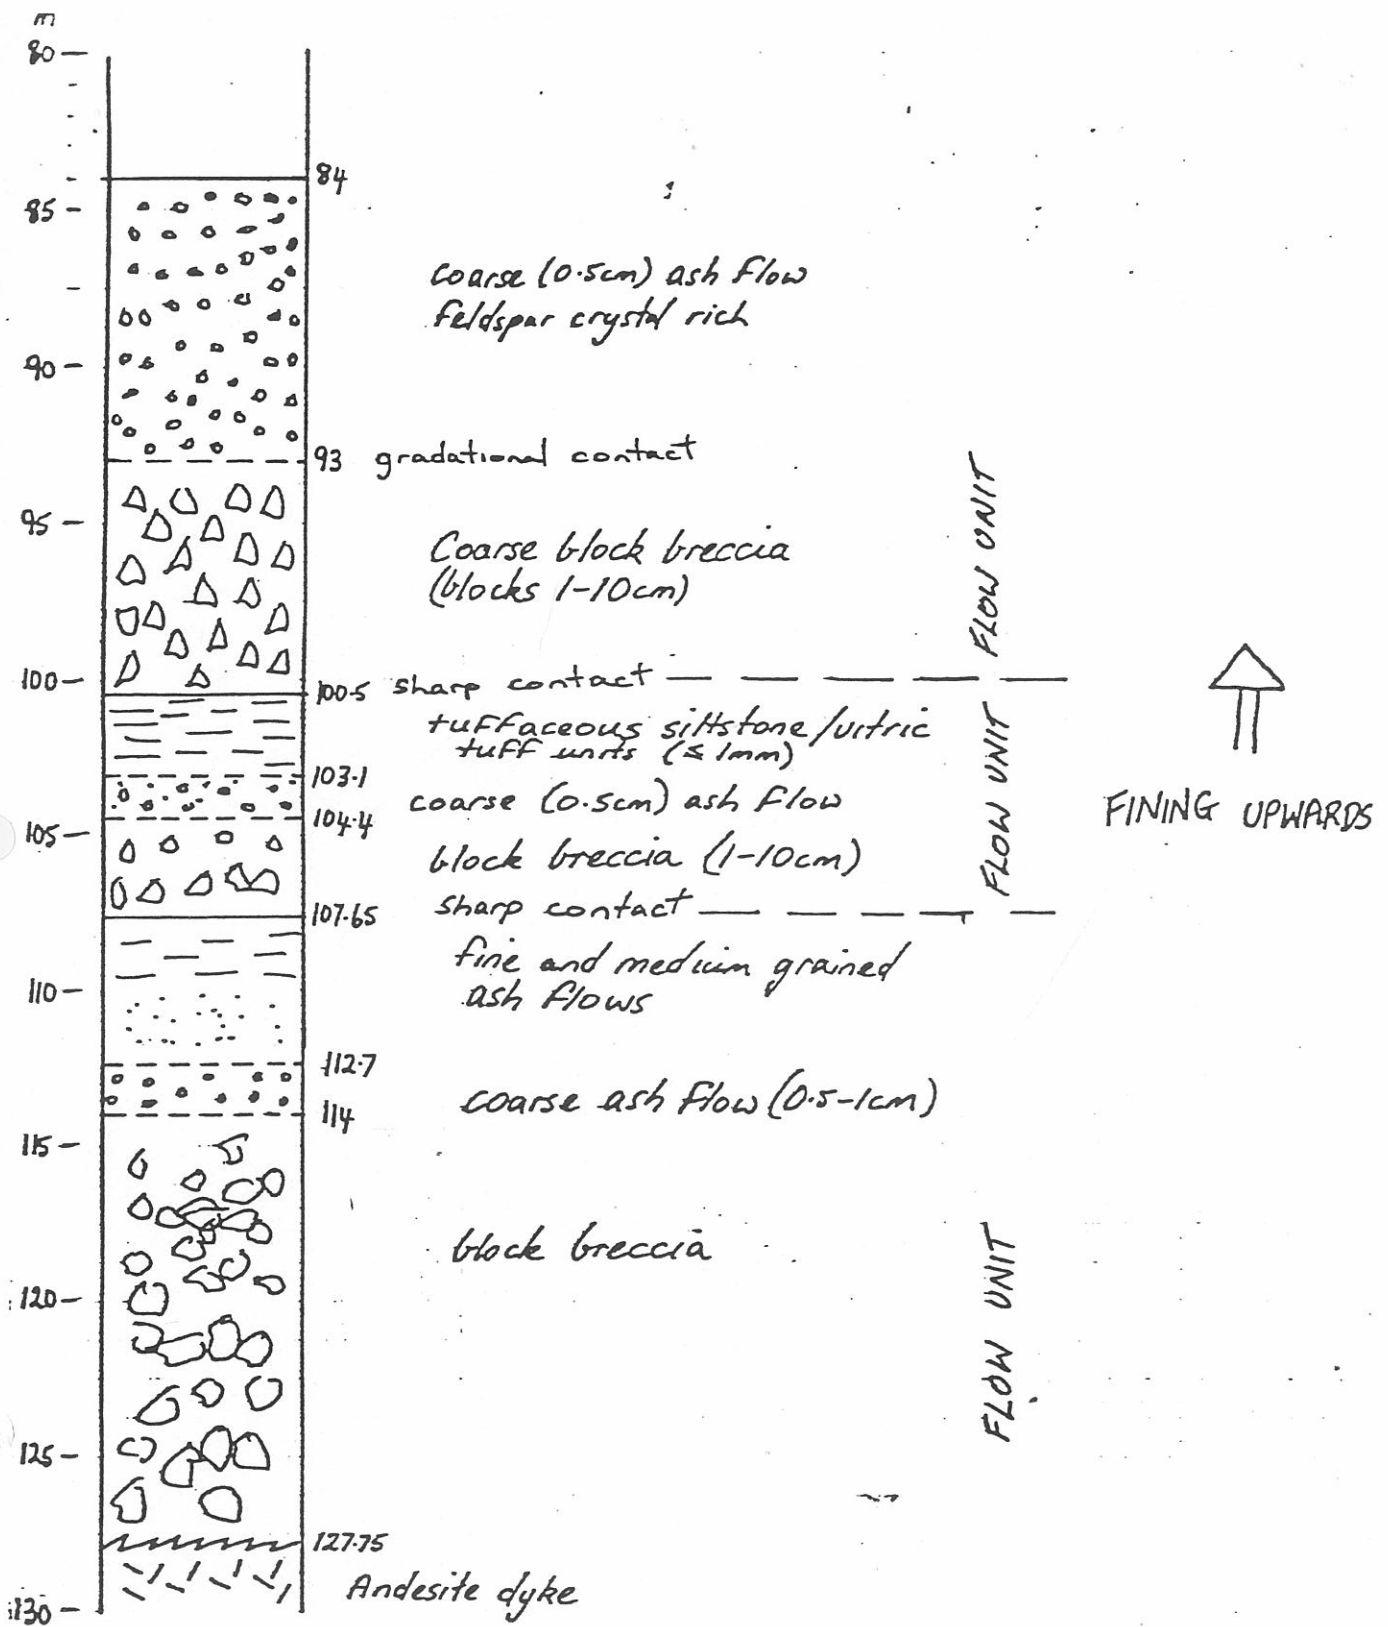 m
80
84
85
coarse (0.5cm) ash flow
feldspar crystal rich
90
93 gradational contact
95
Coarse block breccia
(blocks 1-10cm)
FLOW UNIT
100
100.5 sharp contact
tuffaceous siltstone/vitric
tuff units (≤ 1mm)
103.1
coarse (0.5cm) ash flow
104.4
105
block breccia (1-10cm)
FLOW UNIT
FINING UPWARDS
107.65 sharp contact
fine and medium grained
ash flows
110
112.7
coarse ash flow (0.5-1cm)
114
115
block breccia
FLOW UNIT
120
125
127.75
Andesite dyke
130